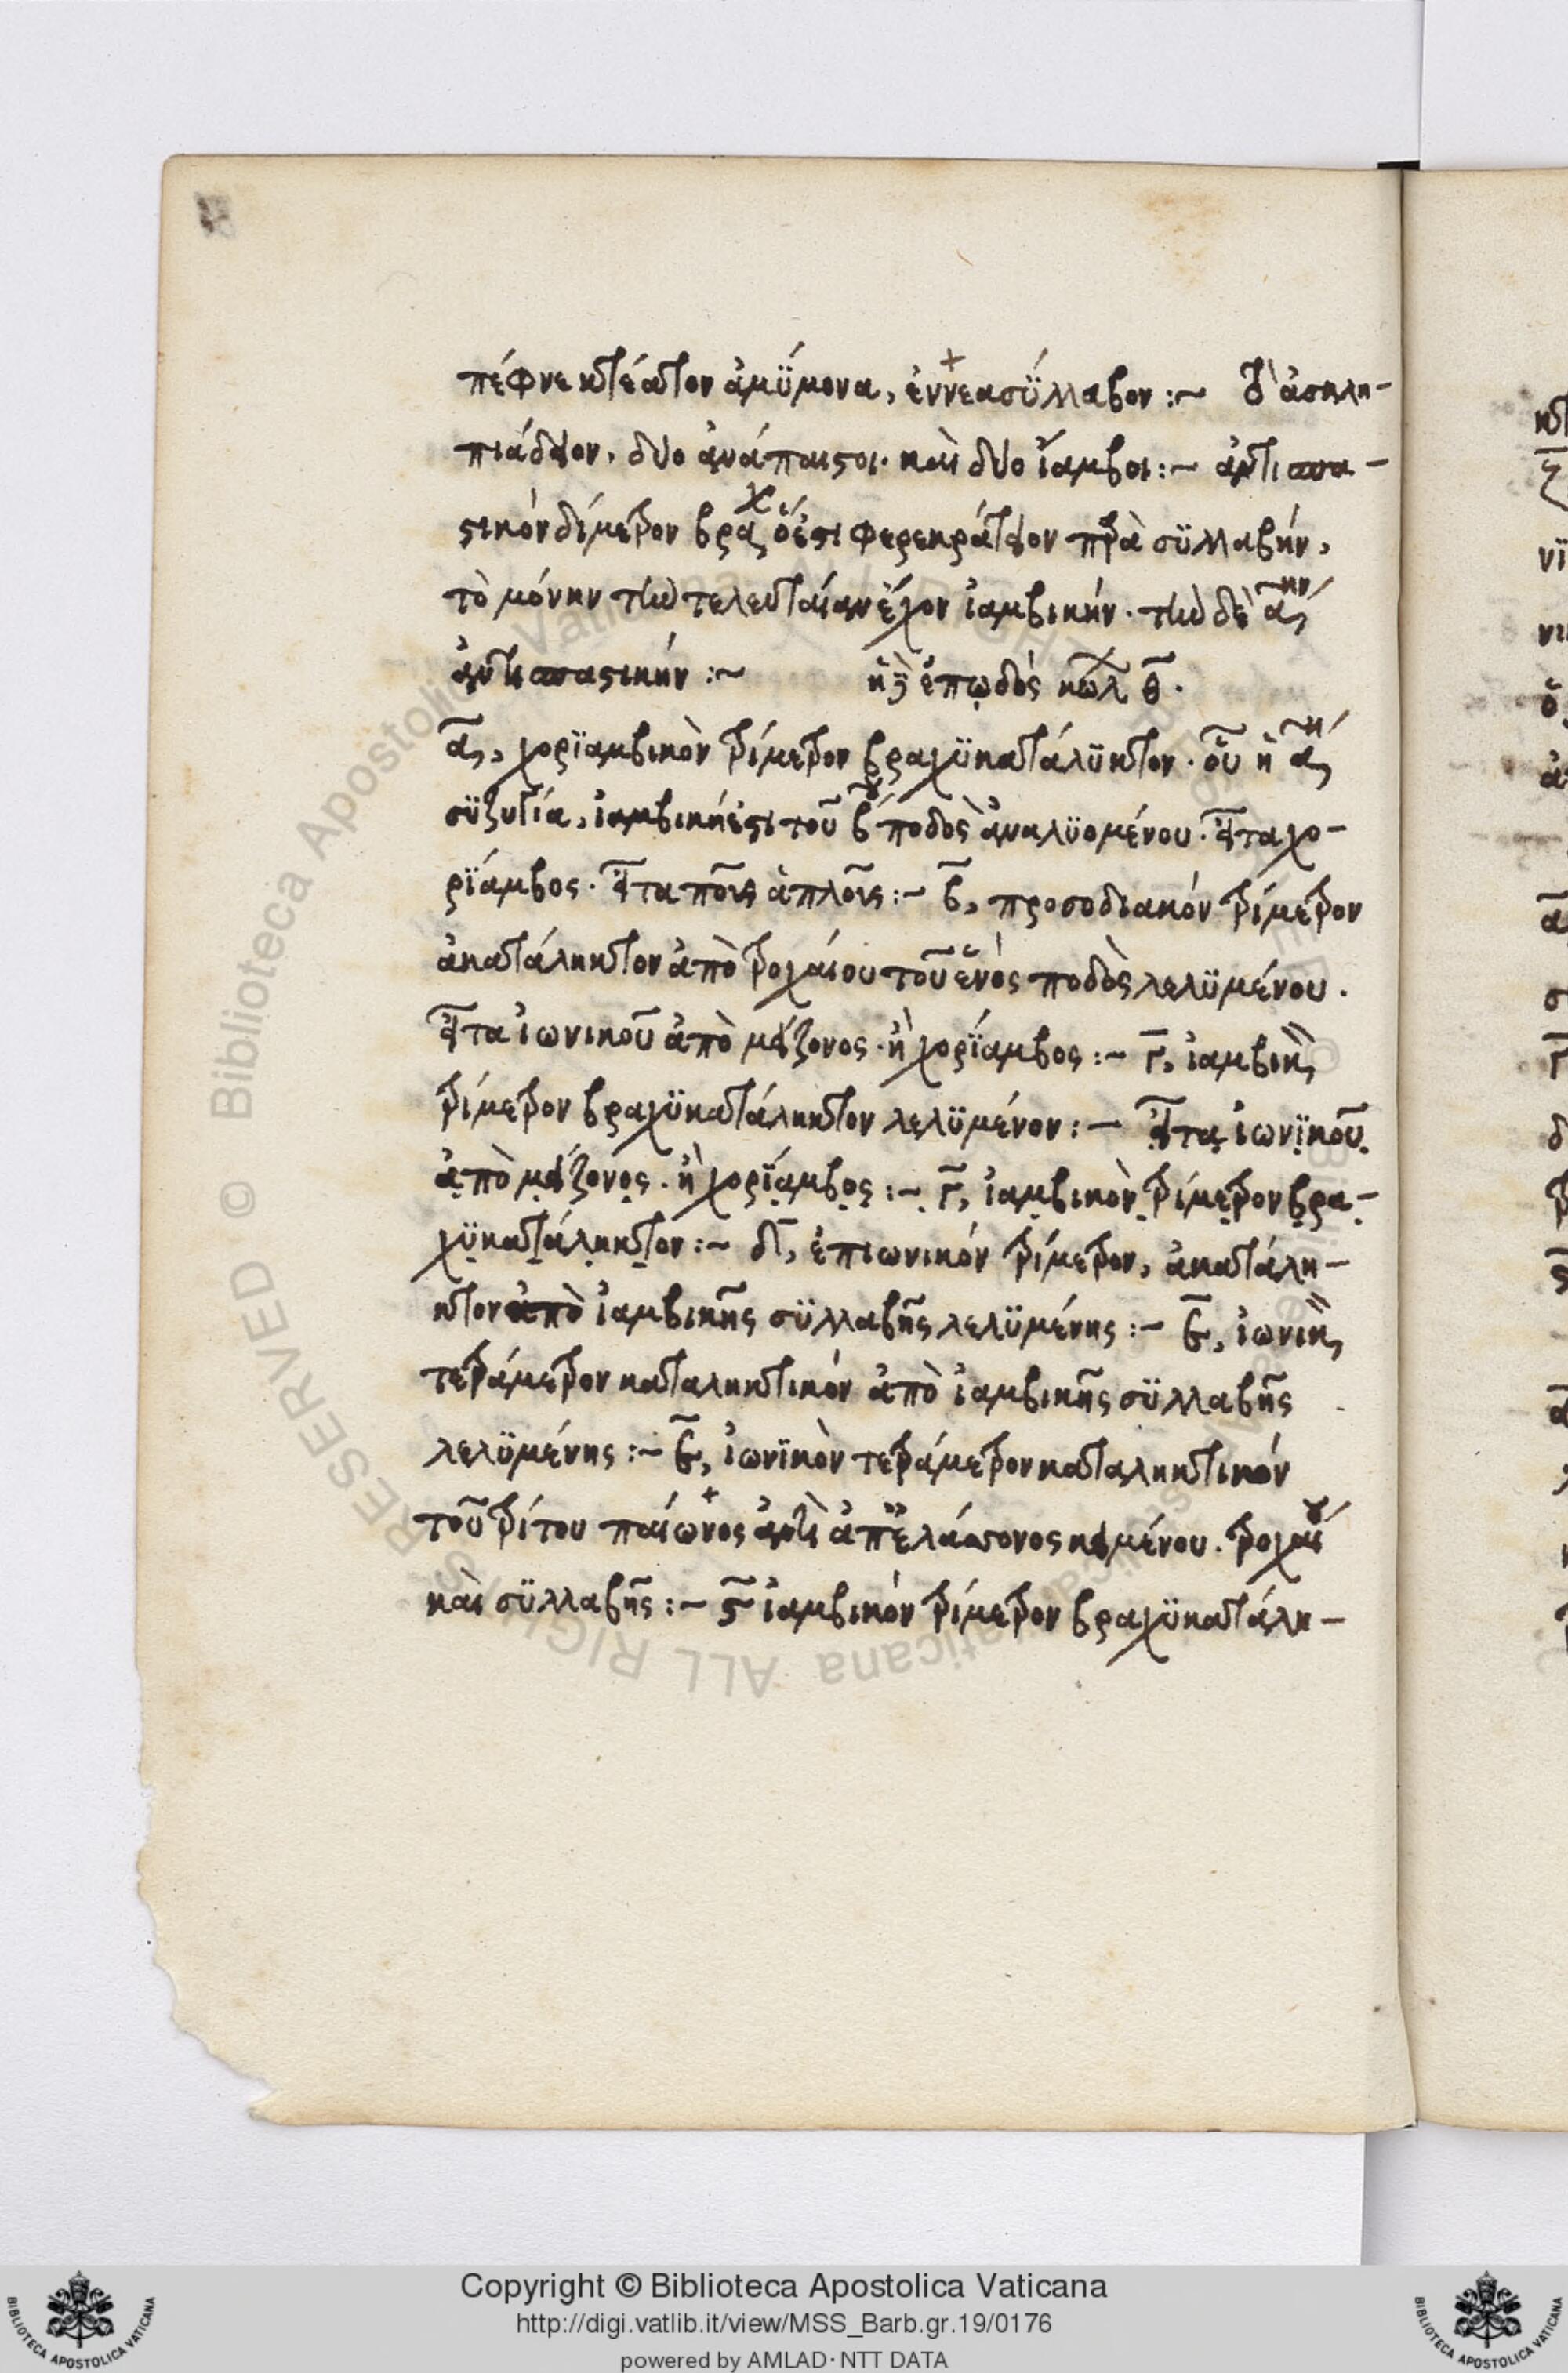 πέφνε κτέατον ἀμϋμονα, ἐννεασϋλλαβον :~ τὸ ἀσκλη-
πιάδειον, δυο ἀνάπαιστοι. καὶ δυο ἴαμβοι :~ ἀντισπα-
στικὸν δίμετρον βραχ ὅ ἐστι φερεκράτειον παρὰ σϋλλαβήν,
τὸ μόνην τὴν τελευταίαν ἔχον ἰαμβικήν. τὴν δὲ ᾱην
ἀντισπαστικήν :~ ἡ δὲ ἐπῳδὸς κώλ θ̄.
ᾱ, χορϊαμβικὸν τρίμετρον βραχϋκατάλϋκτον. οὗ ἡ ᾱη
σϋζυγία, ἰαμβικὴ ἐστι τοῦ β̄ου ποδὸς ἀναλϋομένου. εἶτα χο-
ρϊάμβος. εἶτα ποῦς ἁπλοῦς :~ β̄, προσοδιακόν τρίμετρον
ἀκατάληκτον ἀπὸ τροχαίου τοῦ ἑνὸς ποδὸς λελϋμένου.
εἶτα ἰωνικοῦ ἀπὸ μείζονος. ἢ χορϊάμβος :~ γ̄, ἰαμβικὸν
τρίμετρον βραχϋκατάληκτον λελϋμένον :~ εἶτα ἰωνϊκοῦ
ἀπὸ μείζονος. ἢ χορϊάμβος :~ γ̄, ἰαμβικὸν τρίμετρον βρα-
χϋκατάληκτον :~ δ̄, ἐπιωνικόν τρίμετρον, ἀκατάλη-
κτον ἀπὸ ἰαμβικῆς σϋλλαβῆς λελϋμένης :~ ε̄, ἰωνικὸν
τετράμετρον καταληκτικόν ἀπὸ ἰαμβικῆς σϋλλαβῆς
λελϋμένης :~ ε̄, ἰωνϊκὸν τετράμετρον καταληκτικόν
τοῦ τρίτου παίωνος ἀντὶ ἀπ ἐλάσσονος κειμένου. τροχαίου
καὶ σϋλλαβῆς :~ ϛ̄ ἰαμβικόν τρίμετρον βραχϋκατάλη-
Copyright © Biblioteca Apostolica Vaticana
http://digi.vatlib.it/view/MSS_Barb.gr.19/0176
powered by AMLAD·NTT DATA